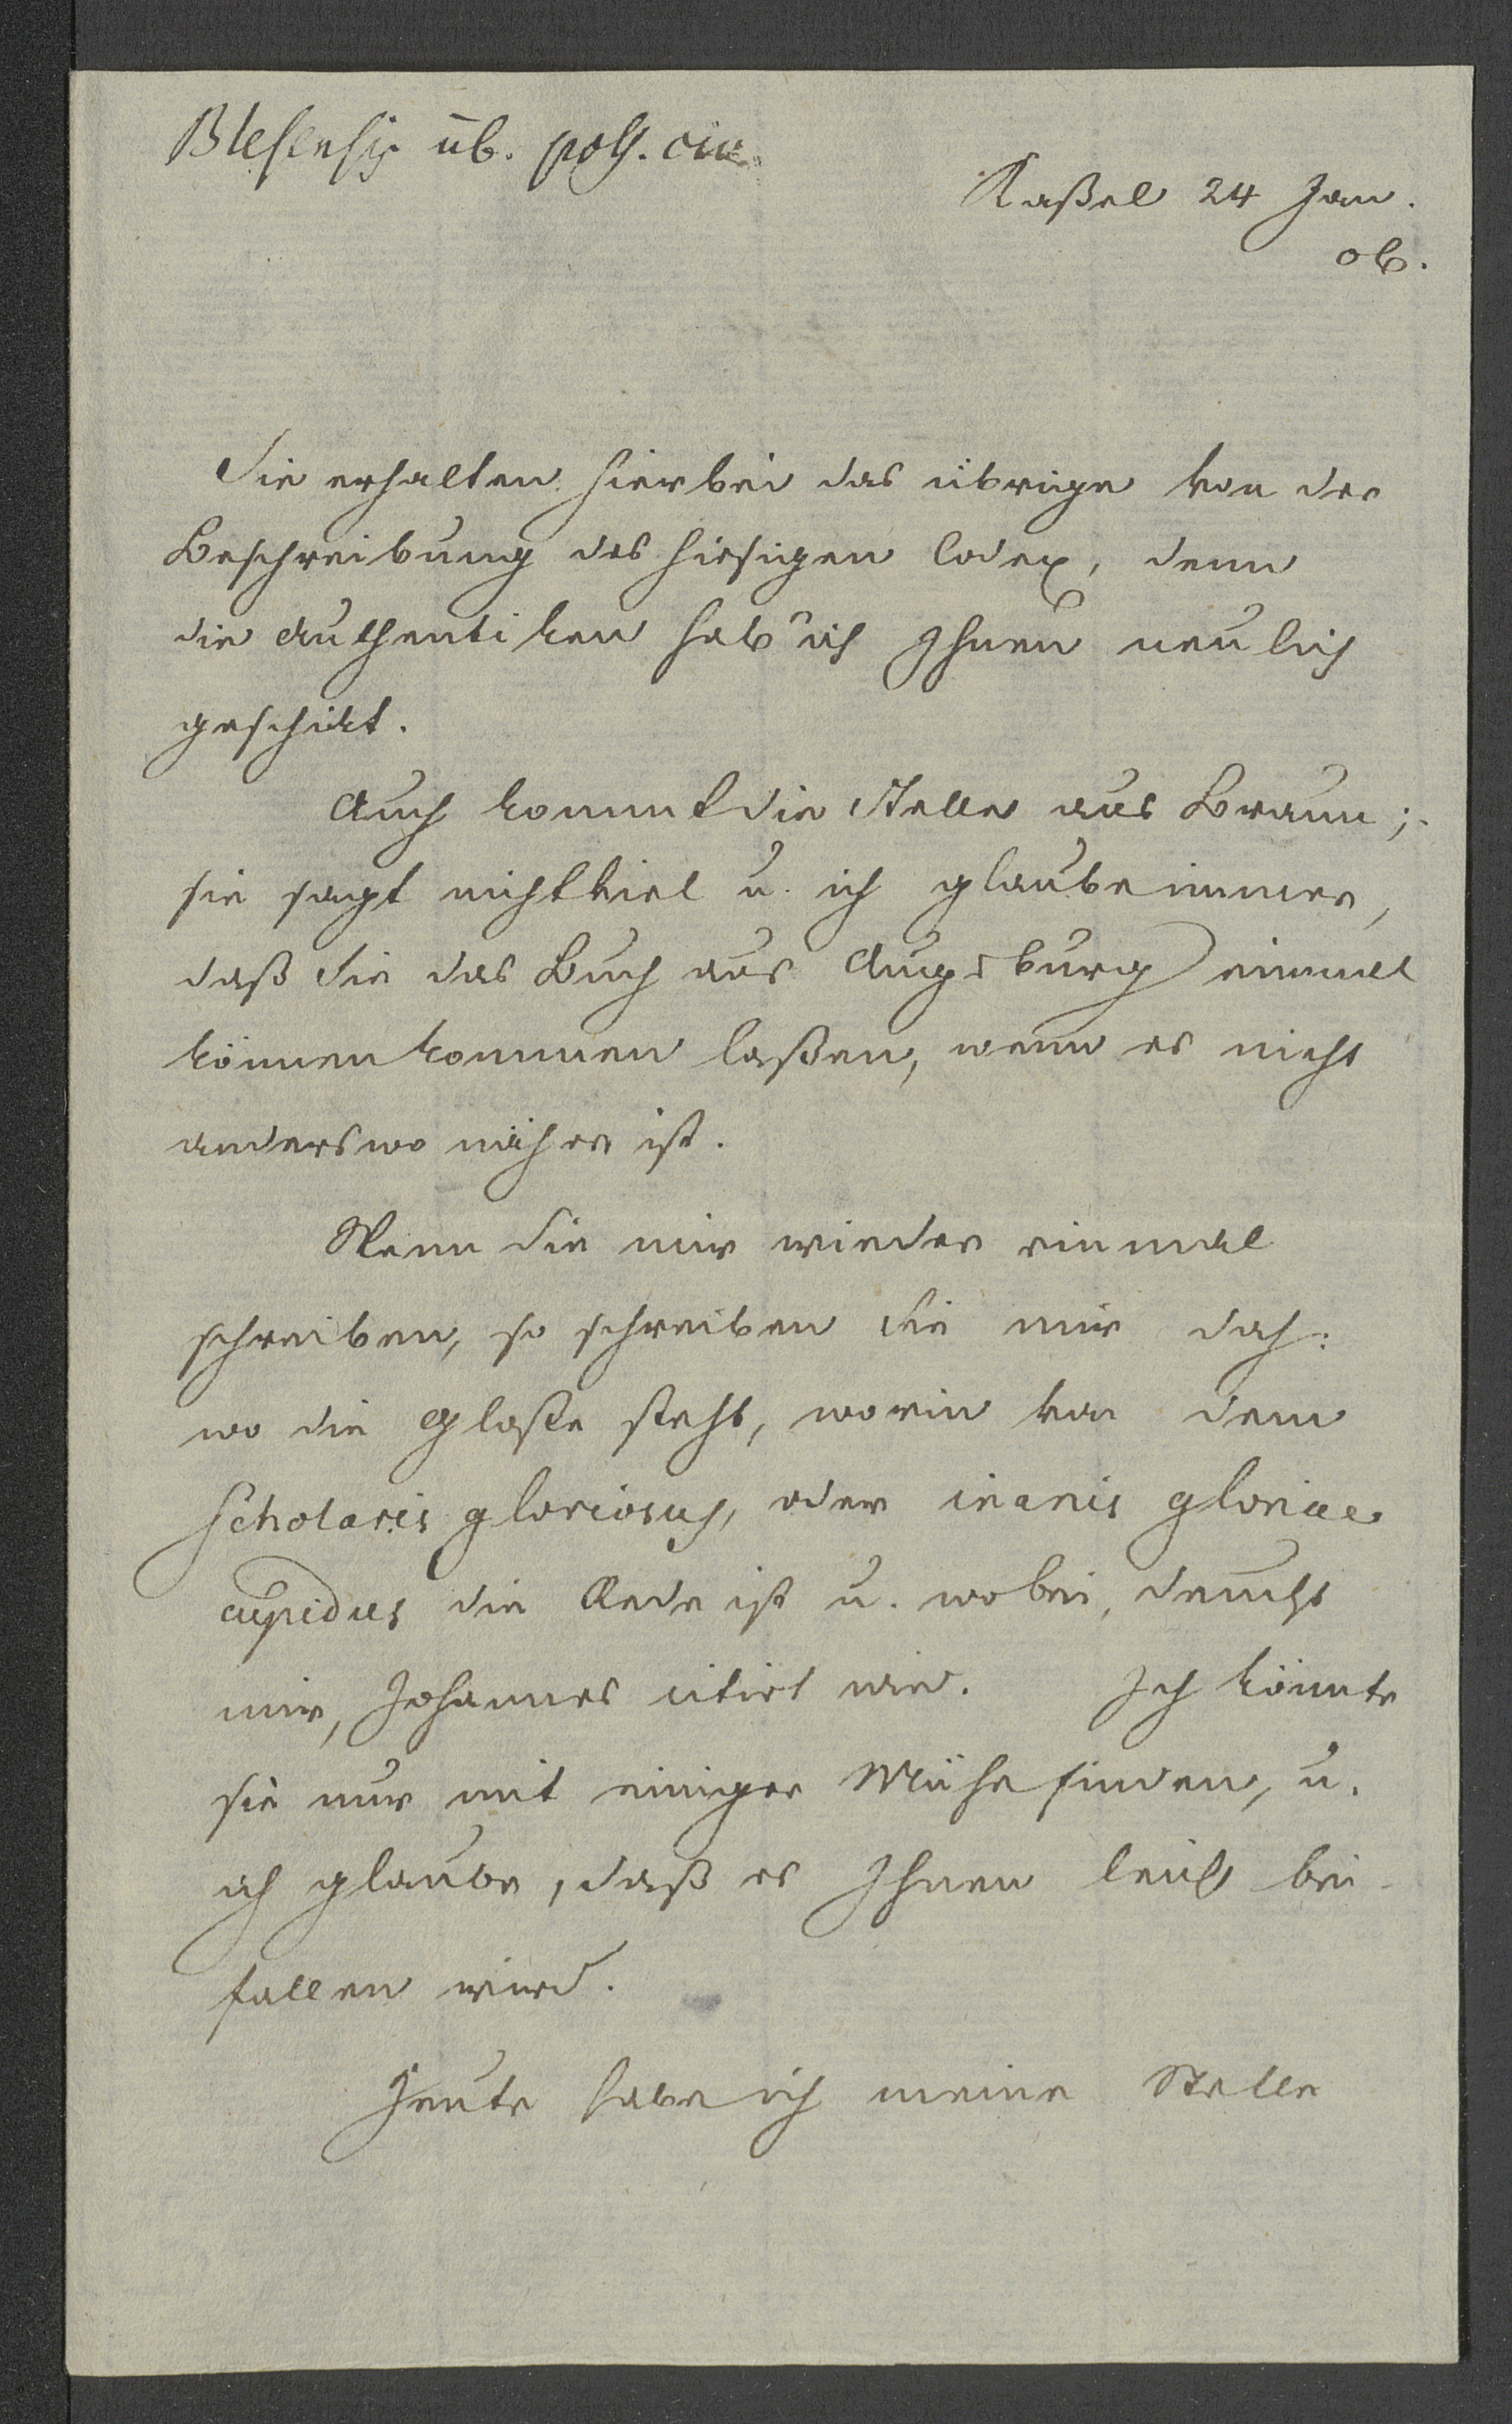 Blesensis üb. poss.
Kaßel 24 Jan.
06.
Sie erhalten hierbei das übrige von der
Beschreibung des hiesigen Codex, denn
die Authentiken hab' ich Ihnen neulich
geschickt.
Auch kommt die Stelle aus Braun;
sie sagt nicht viel u. ich glaube immer,
daß Sie das Buch aus Augsburg einmal
können kommen laßen, wenn es nicht
anderswo näher ist.
Wenn Sie mir wieder einmal
schreiben, so schreiben Sie mir doch:
wo die Gloße steht, worin von dem
Scholaris gloriosus, oder inanis gloriae
cupidus die Rede ist u. wobei, deucht
mir, Johannes citirt wird. Ich könnte
sie nur mit einiger Mühe finden, u.
ich glaube, daß es Ihnen leicht bei-
fallen wird.
Heute habe ich meine Stelle